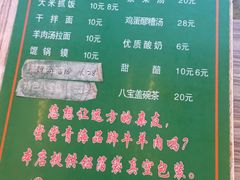 大米抓饭 10元
干拌面 10元
羊肉汤拉面 10元
馄锅馍
紫菜汤 28元
鸡蛋醪糟汤 8元
优质酸奶 6元
甜醅 10元6元
八宝盖碗茶 20元
您想让远方的亲友,
尝尝青海品牌牛羊肉吗?
本店提供铝箔袋真空包装。